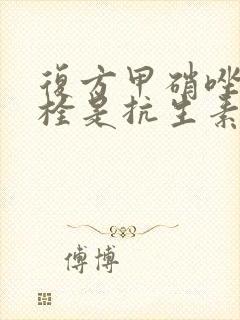 復方甲硝唑
栓是抗生素
傅博